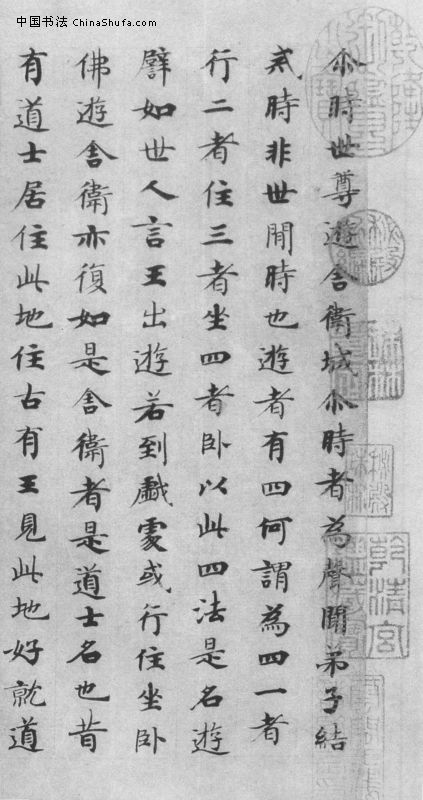 中国书法 ChinaShufa.com
尒時世尊遊舍衛城尒時者為聲聞弟子結
戒時非世間時也遊者有四何謂為四一者
行二者住三者坐四者卧以此四法是名遊
譬如世人言王出遊若到戲處或行住坐卧
佛遊舍衛亦復如是舍衛者是道士名也昔
有道士居住此地住古有王見此地好就道
秘殿珠林
乾清宮鑒藏寶